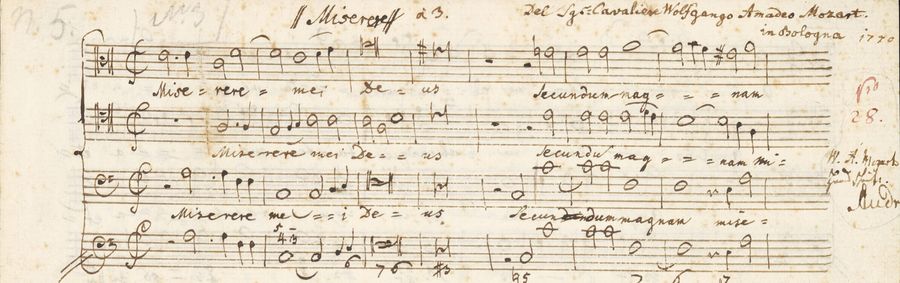 n. 5.
Miserere à 3. Del Sg.r Cavaliere Wolfgango Amadeo Mozart.
in Bologna 1770
Mise = rere = mei De = us Secundum mag = = = nam
28.
Miserere mei De = = us Secundu mag = = = nam mi =
W. A. Mozart
Miserere me = = i De = us Secundum magnam mise =
5
4 3
6 7 6 #3 6 7